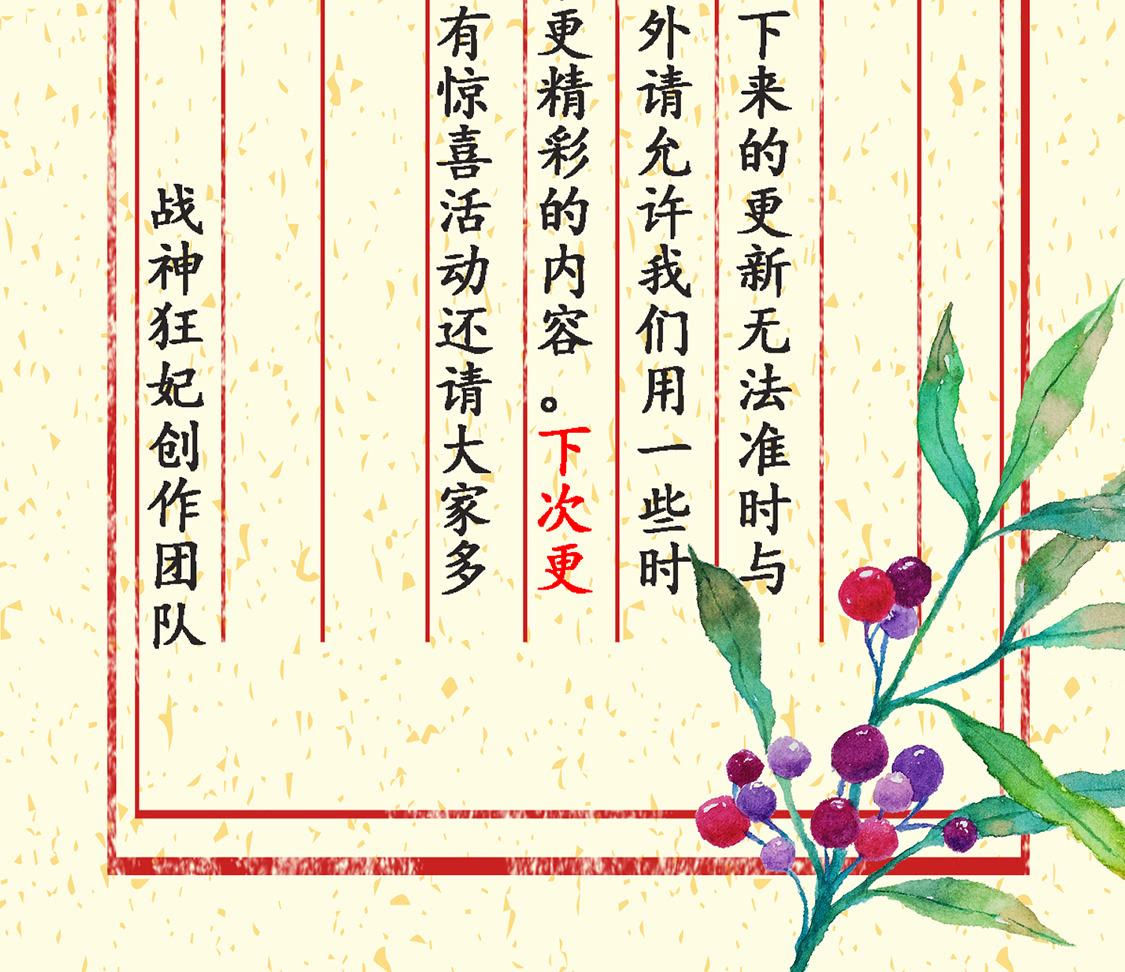 下来的更新无法准时与
外请允许我们用一些时
更精彩的内容。下次更
有惊喜活动还请大家多
战神狂妃创作团队